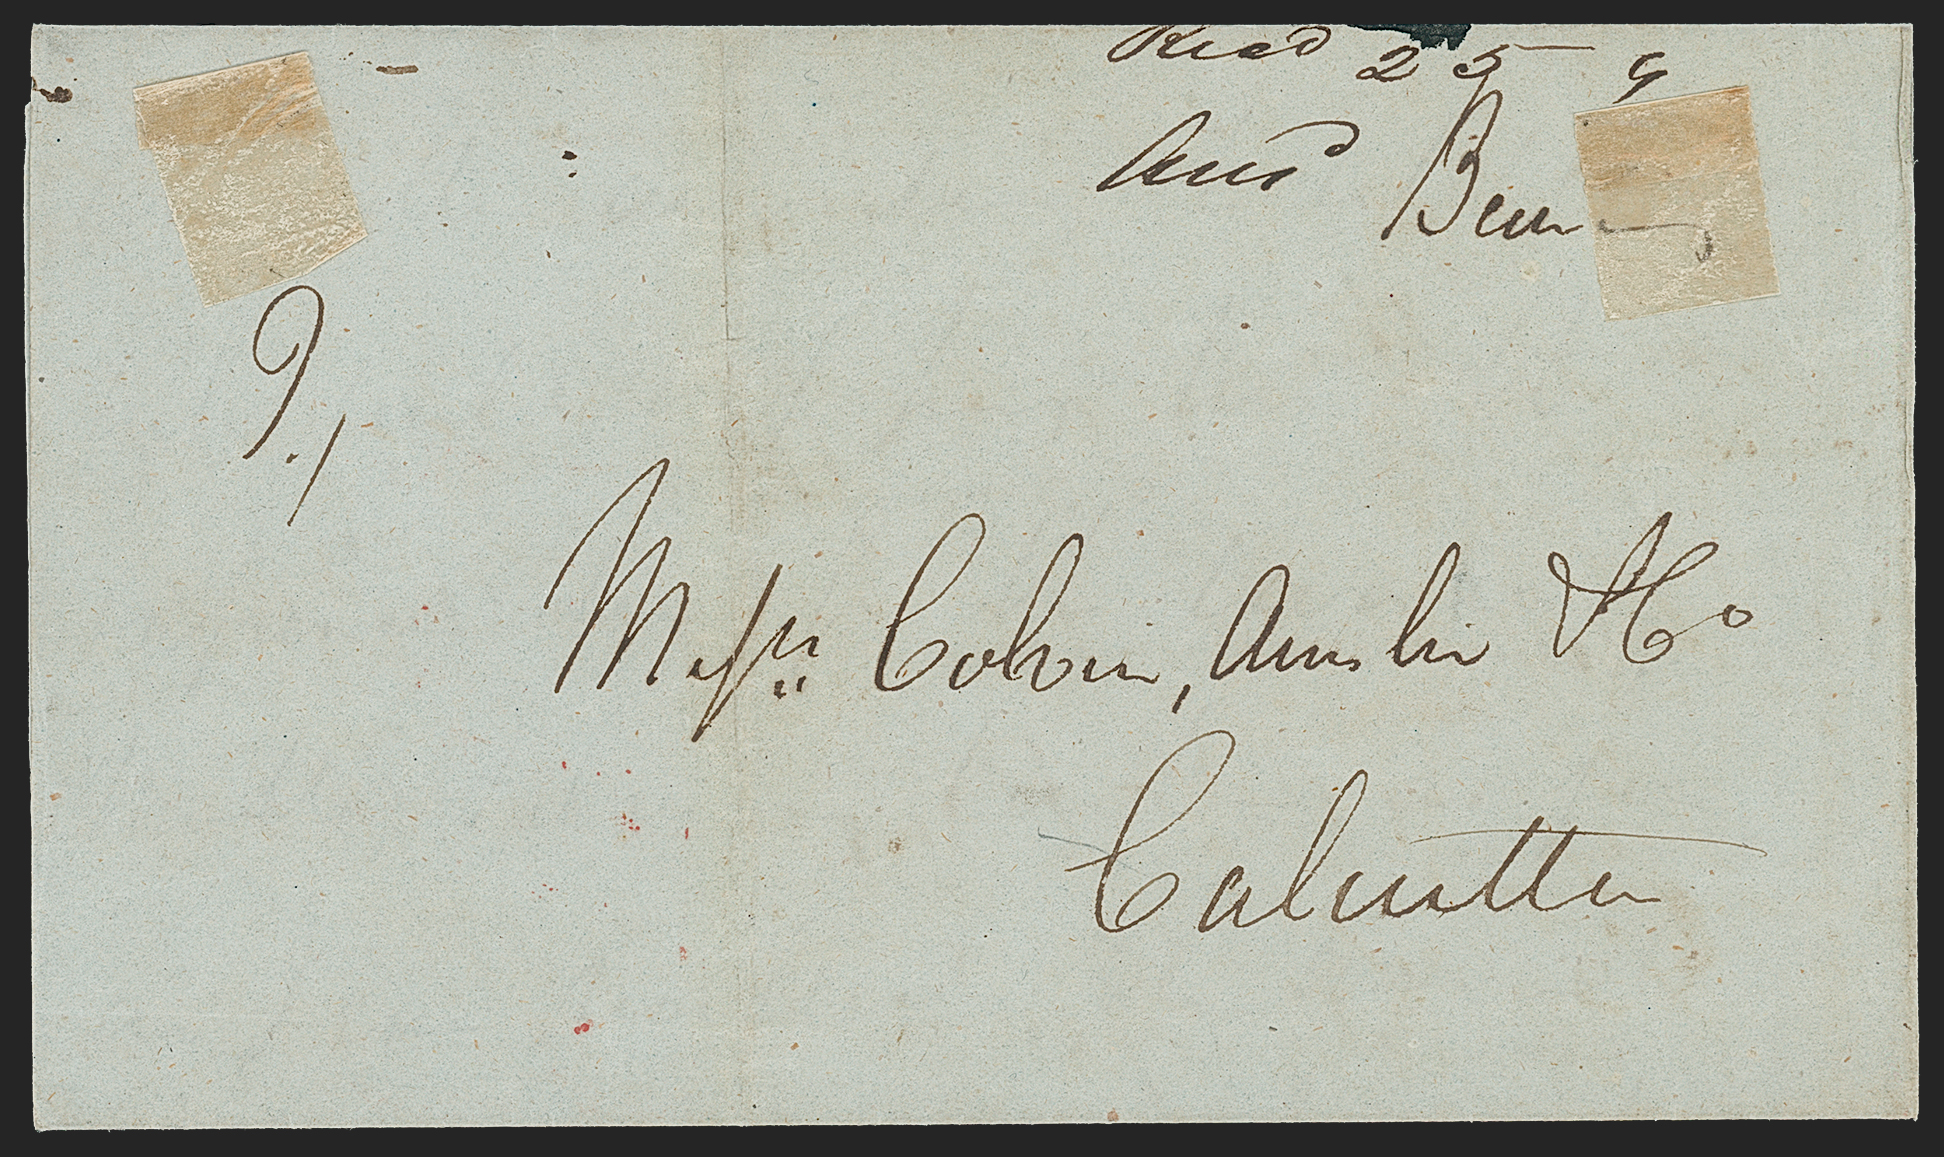 Recd 25 9
Ansd
9./
Messrs Colvin, Ainslie & Co
Calcutta